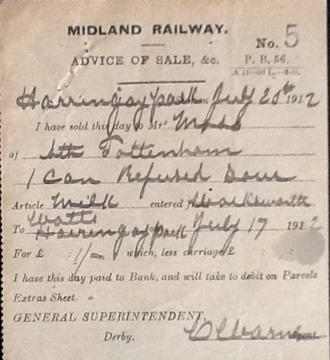 MIDLAND RAILWAY.
No. 5
ADVICE OF SALE, &c.
P. B. 56.
Harringay park Station July 20th 1912
I have sold this day to Mr.
of Sth Tottenham
1 Can Refused Sour
Article Milk entered from
Watts
To Harringay park July 17 1912
For £ 1/- which, less carriage £
I have this day paid to Bank, and will take to debit on Parcels
Extras Sheet.
GENERAL SUPERINTENDENT,
Derby.
Agent